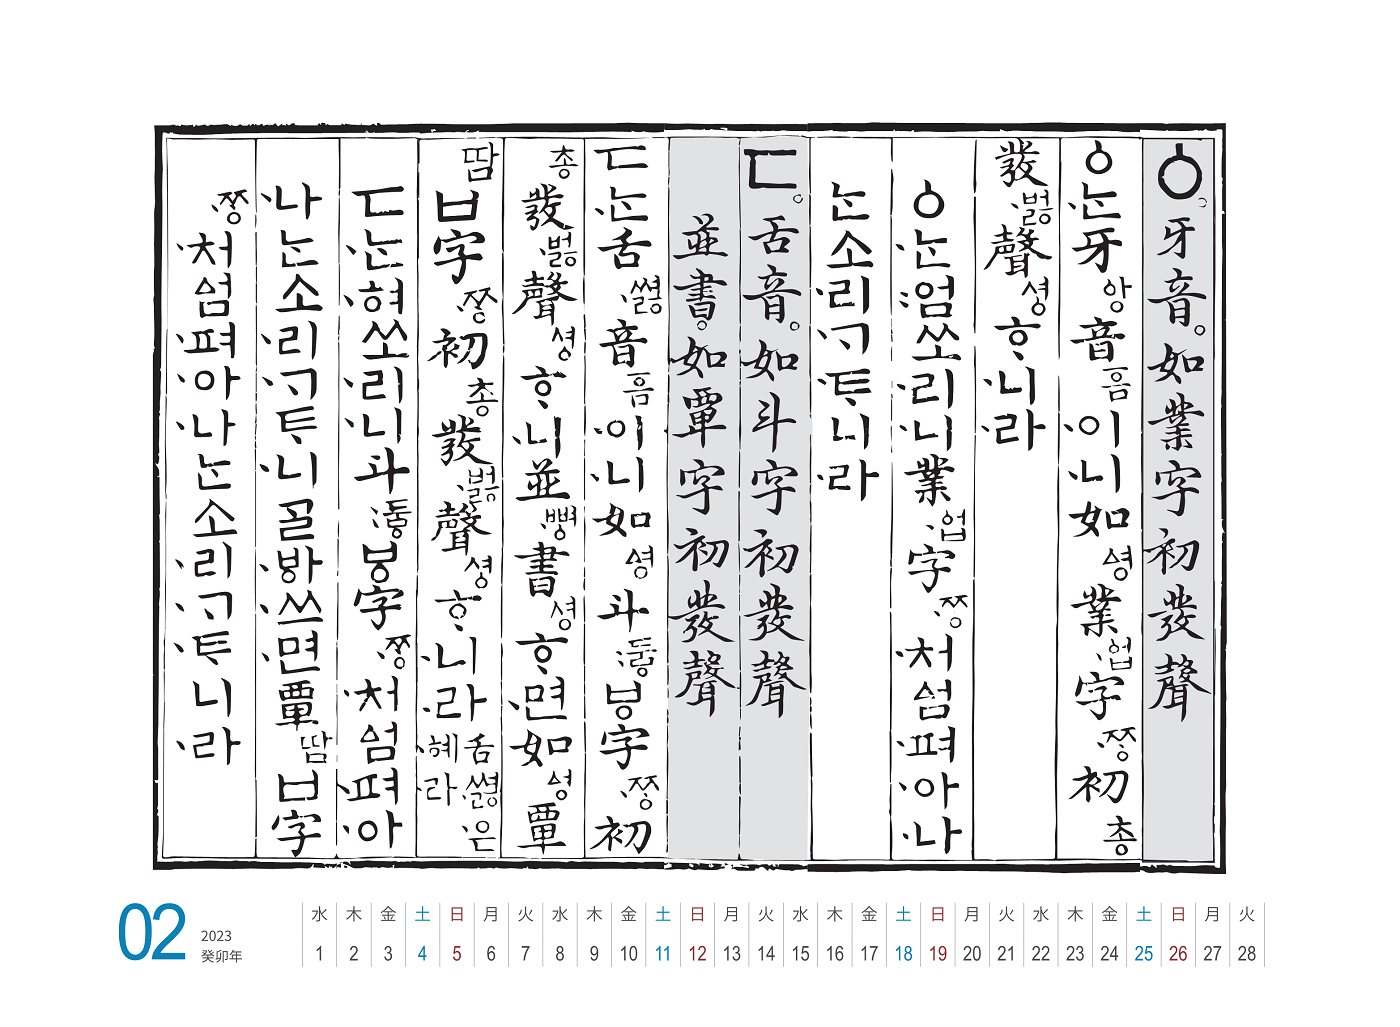 ㆁ。牙音。如業字初發聲
ㆁᄂᆞᆫ牙앙音ᅙᅳᆷ이니如ᅀᅧᆼ業업字ᄍᆞᆼ初총
發버ᇙ聲셩ᄒᆞ니라
ㆁᄂᆞᆫ엄쏘리니業업字ᄍᆞᆼ처ᅀᅥᆷ펴아나
ᄂᆞᆫ소리ᄀᆞᄐᆞ니라
ㄷ。舌音。如斗字初發聲
並書。如覃字初發聲
ㄷᄂᆞᆫ舌쎠ᇙ音ᅙᅳᆷ이니如ᅀᅧᆼ斗두ᇢㅸ字ᄍᆞᆼ初
총發버ᇙ聲셩ᄒᆞ니並뼝書셩ᄒᆞ면如ᅀᅧᆼ覃
땀ㅂ字ᄍᆞᆼ初총發버ᇙ聲셩ᄒᆞ니라舌쎠ᇙ은혜라
ㄷᄂᆞᆫ혀쏘리니斗두ᇢㅸ字ᄍᆞᆼ처ᅀᅥᆷ펴아
나ᄂᆞᆫ소리ᄀᆞᄐᆞ니ᄀᆞᆯᄫᅡ쓰면覃땀ㅂ字
ᄍᆞᆼ처ᅀᅥᆷ펴아나ᄂᆞᆫ소리ᄀᆞᄐᆞ니라
02
2023
癸卯年
水 木 金 土 日 月 火 水 木 金 土 日 月 火 水 木 金 土 日 月 火 水 木 金 土 日 月 火
1 2 3 4 5 6 7 8 9 10 11 12 13 14 15 16 17 18 19 20 21 22 23 24 25 26 27 28